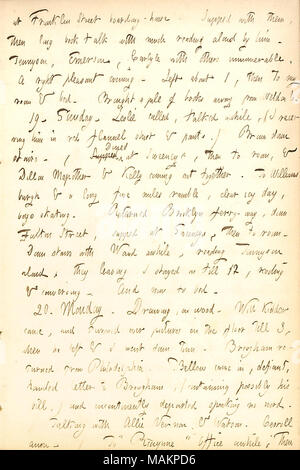 at Franklin Street boarding-house. Supped with them,
then long book & talk with much reading aloud by him.
Tennyson, Emerson, Carlyle with others innumerable.
A right pleasant evening. Left about 1, then to my
room & bed. Brought a pile of books away from Welden's.
19. Sunday. Leslie called, talked awhile, (I receiv-
ing him in red flannel shirt & pants.) Down
stairs. ( Dined at Sweeny's, then to room, &
Dillon Mapother & Kelly coming out together. To Williams-
burgh & a long five miles ramble, clear icy day,
boys skating. Returned Brooklyn ferry-way, down
Fulton Street, supped at then to room.
Down stairs with Ward awhile, reading Tennyson
aloud, they leaving I stayed in till 12, reading
& conversing. And now to bed.
20. Monday. Drawing, in ward. Will Kidder
came, and turned over pictures on the floor till I,
when he left & I went down town. Brougham re-
turned from Philadelphia. Bellew came in, defiant,
handed letter to Brougham, (containing possibly his
bill,) and incontinently departed speaking no word.
Talking with Allie Vernon, & Watson. Carroll
anon. To "Picayune" Office awhile; then
alamy
Image ID: MAKPD6
www.alamy.com